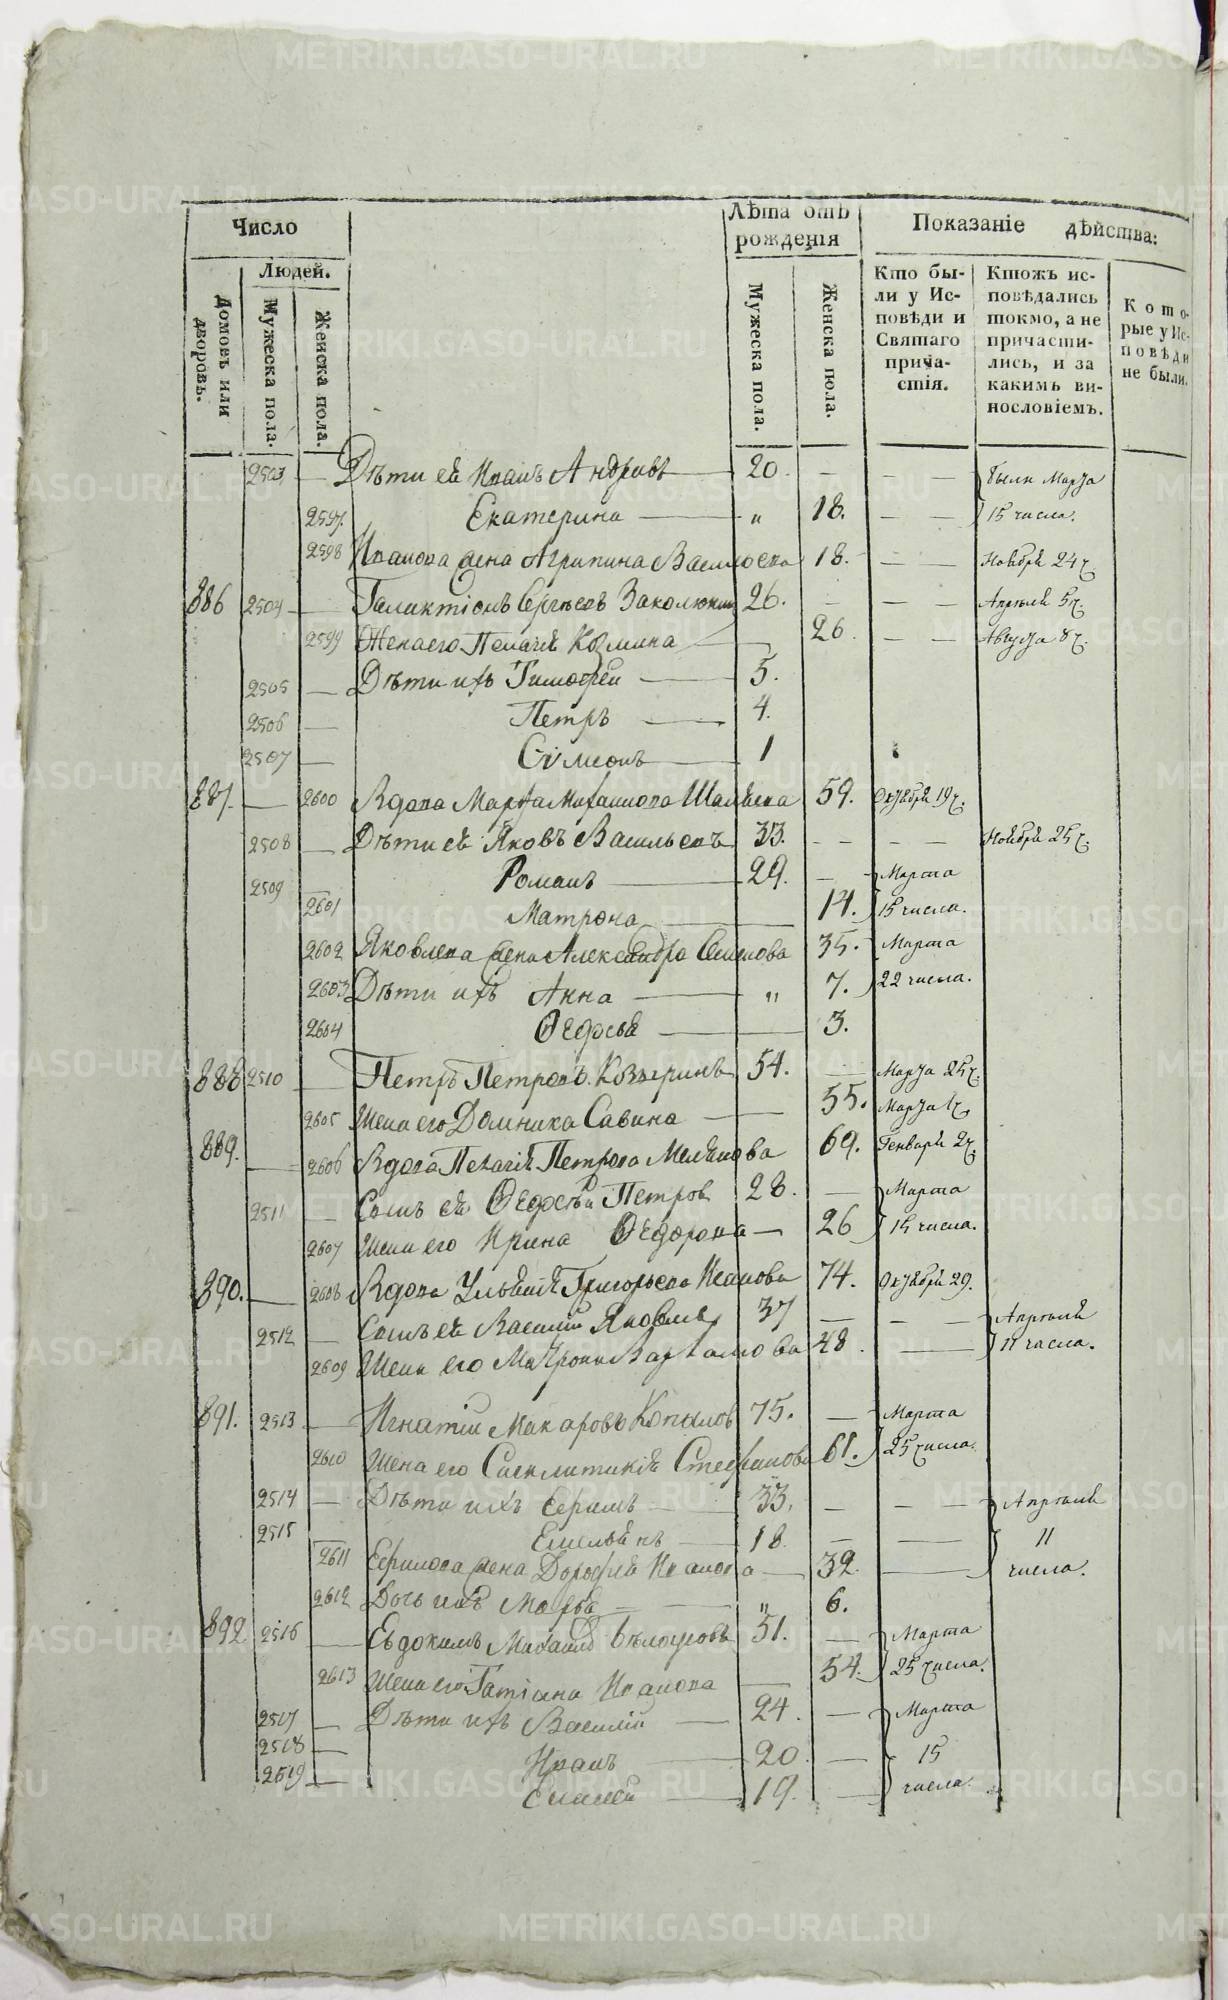 Число
Лѣта отъ рожденія
Показаніе дѣйства:
Людей.
Домовъ или дворовъ.
Мужеска пола.
Женска пола.
Мужеска пола.
Женска пола.
Кто были у Исповѣди и Святаго причастія.
Ктожъ исповѣдались токмо, а не причастились, и за какимъ винословіемъ.
Которые у Исповѣди не были.
2503 — Дѣти ея Иванъ Андреевъ — 20. — — — были Марта
2597. Екатерина — „ 18. — — 15 числа.
2598 Иванова жена Агрипина Васильева 18. — — Ноября 24 ч.
886 2504 — Галактіонъ Сергѣевъ 26. — — — Апрѣля 5 ч.
2599 Жена его Пелагія Козмина — 26 — — Августа 8 ч.
2505 — Дѣти ихъ Тимофей — 5.
2506 — Петръ — 4.
2507 — Сѵмеонъ — 1
887. — 2600 Вдова Марфа Михайлова 59. Октября 19 ч.
2508 — Дѣти ея Яковъ Васильевъ 33. — — — — Ноября 25 ч.
2509 — Романъ — 29. — Марта
2601 Матрона — 14. 15 числа.
2602 Яковлева жена Александра Семенова 35. Марта
2603 Дѣти ихъ Анна — „ 7. 22 числа.
2604 Ѳедосья — 3.
888 2510 — Петръ Петровъ Козыринъ 54. — Марта 25 ч.
2605 Жена его Домника Савина — 55. Марта 1 ч.
889. — 2606 Вдова Пелагія Петрова 69. Генваря 2 ч.
2511 — Сынъ ея Петров 28. — Марта
2607 Жена его Ирина Ѳедорова — 26 15 числа.
890. — 2608 Вдова Ульянія Григорьева Иванова 74. Октября 29.
2512 — Сынъ ея Василій Яковлев 37 — — — Апрѣля
2609 Жена его Матрона Варламова 48. — 11 числа.
891. 2513 — Игнатій Макаровъ Копылов 75. — Марта
2610 Жена его Стефанова 61. 25 числа.
2514 — Дѣти ихъ Ефимъ — 33. — — — Апрѣля
2515 — Емельянъ — 18. — — 11
2611 Ефимова жена Дорофея Иванова — 32. — числа.
2612 Дочь ихъ Марфа — „ 6.
892 2516 — Евдокимъ Михайлов 51. — Марта
2613 Жена его Татіяна Иванова — 54. 25 числа.
2517 — Дѣти ихъ Василій — 24. — Марта
2518 — Иванъ — 20. — 15
2519 — — 19. — числа.